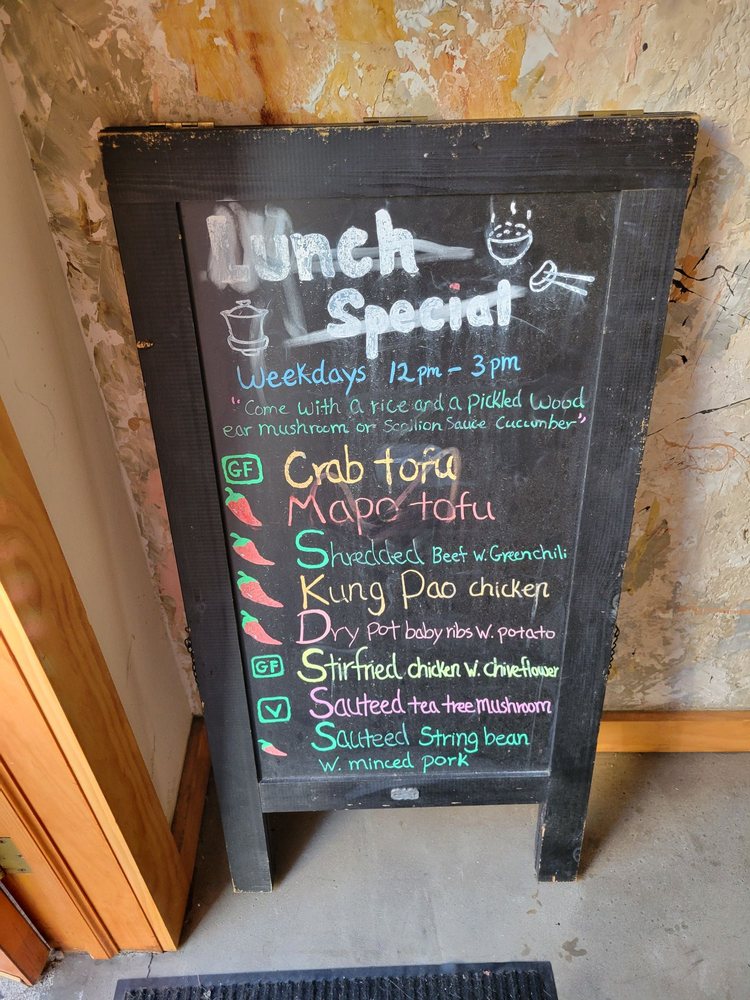 Lunch
Special
Weekdays 12pm - 3pm
"Come with a rice and a pickled wood
ear mushroom or Scallion Sauce Cucumber"
GF Crab tofu
Mapo tofu
Shredded Beef w. Green chili
Kung Pao chicken
Dry pot baby ribs w. potato
GF Stirfried chicken w. chiveflower
V Sauteed tea tree mushroom
Sauteed String bean
w. minced pork